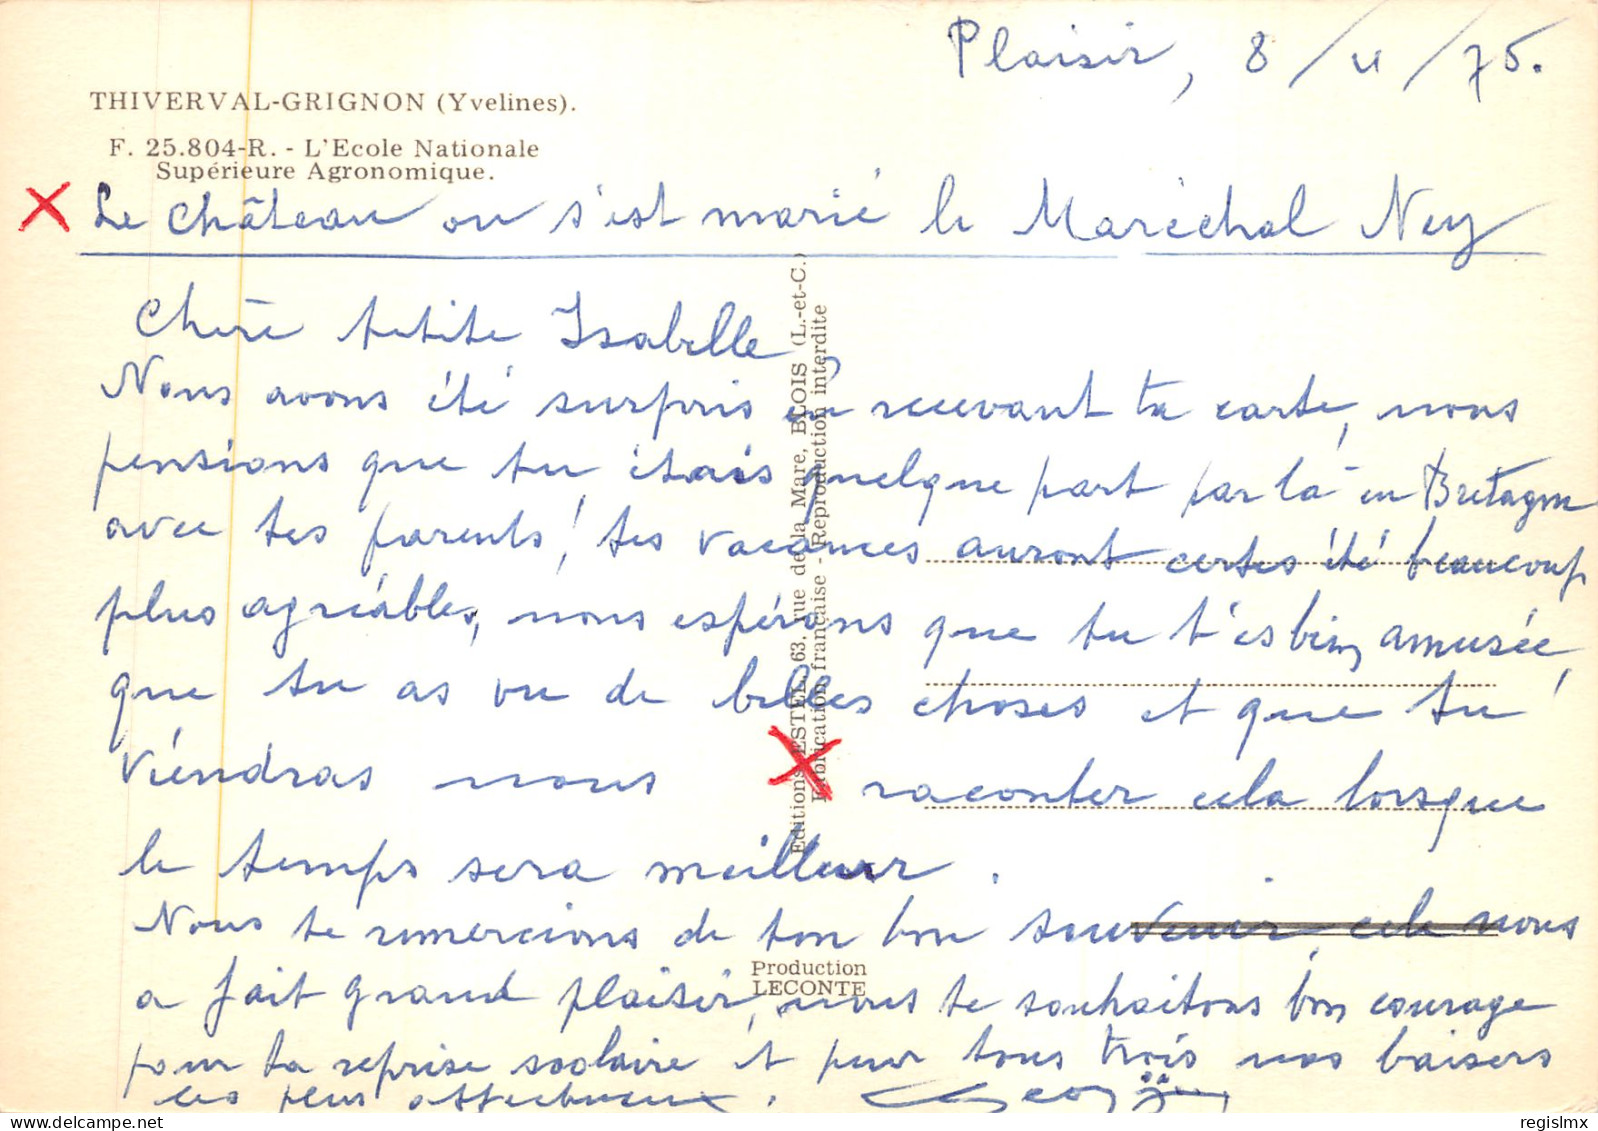 Plaisir, 8/4/75.
THIVERVAL-GRIGNON (Yvelines).
F. 25.804-R. - L'Ecole Nationale
Supérieure Agronomique.
Le château ou s'est marié le Maréchal Ney
Chère petite Isabelle,
Nous avons été surpris en recevant ta carte, nous
pensions que tu étais quelque part par là en Bretagne
avec tes parents! tes vacances auront certes été beaucoup
plus agréables, nous espérons que tu t'es bien amusée,
que tu as vu de belles choses et que tu
viendras nous raconter cela lorsque
le temps sera meilleur.
Nous te remercions de ton bon souvenir, cela nous
a fait grand plaisir, nous te souhaitons bon courage
pour ta reprise scolaire et pour tous trois nos baisers
les plus affectueux.
Editions ESTEL, 63, rue de la Mare, BLOIS (L.-et-C.)
Fabrication française - Reproduction interdite
Production
LECONTE
regislmx